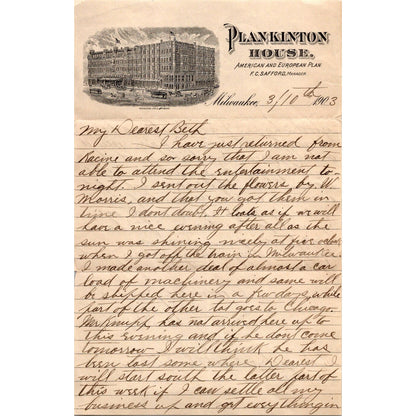 PLANKINTON
HOUSE.
AMERICAN AND EUROPEAN PLAN
F.C. SAFFORD, MANAGER
Milwaukee, 3/10th 1903
My Dearest Beth
I have just returned from
Racine and so sorry that I am not
able to attend the entertainment to-
night. I sent out the flowers by W.
Morris, and that you got them in
time I dont doubt. It looks as if we will
have a nice evening after all as the
sun was shining nicely at five oclock
when I got off the train in Milwaukee.
I made another deal of almost a car
load of machinery and same will
be shipped here in a few days, while
part of the other lot goes to Chicago.
Mr has not arrived here up to
this evening and if he dont come
tomorrow I will think he has
been lost some where. Dearest I
will start south the latter part of
this week if I can settle all my
business up and get everything in